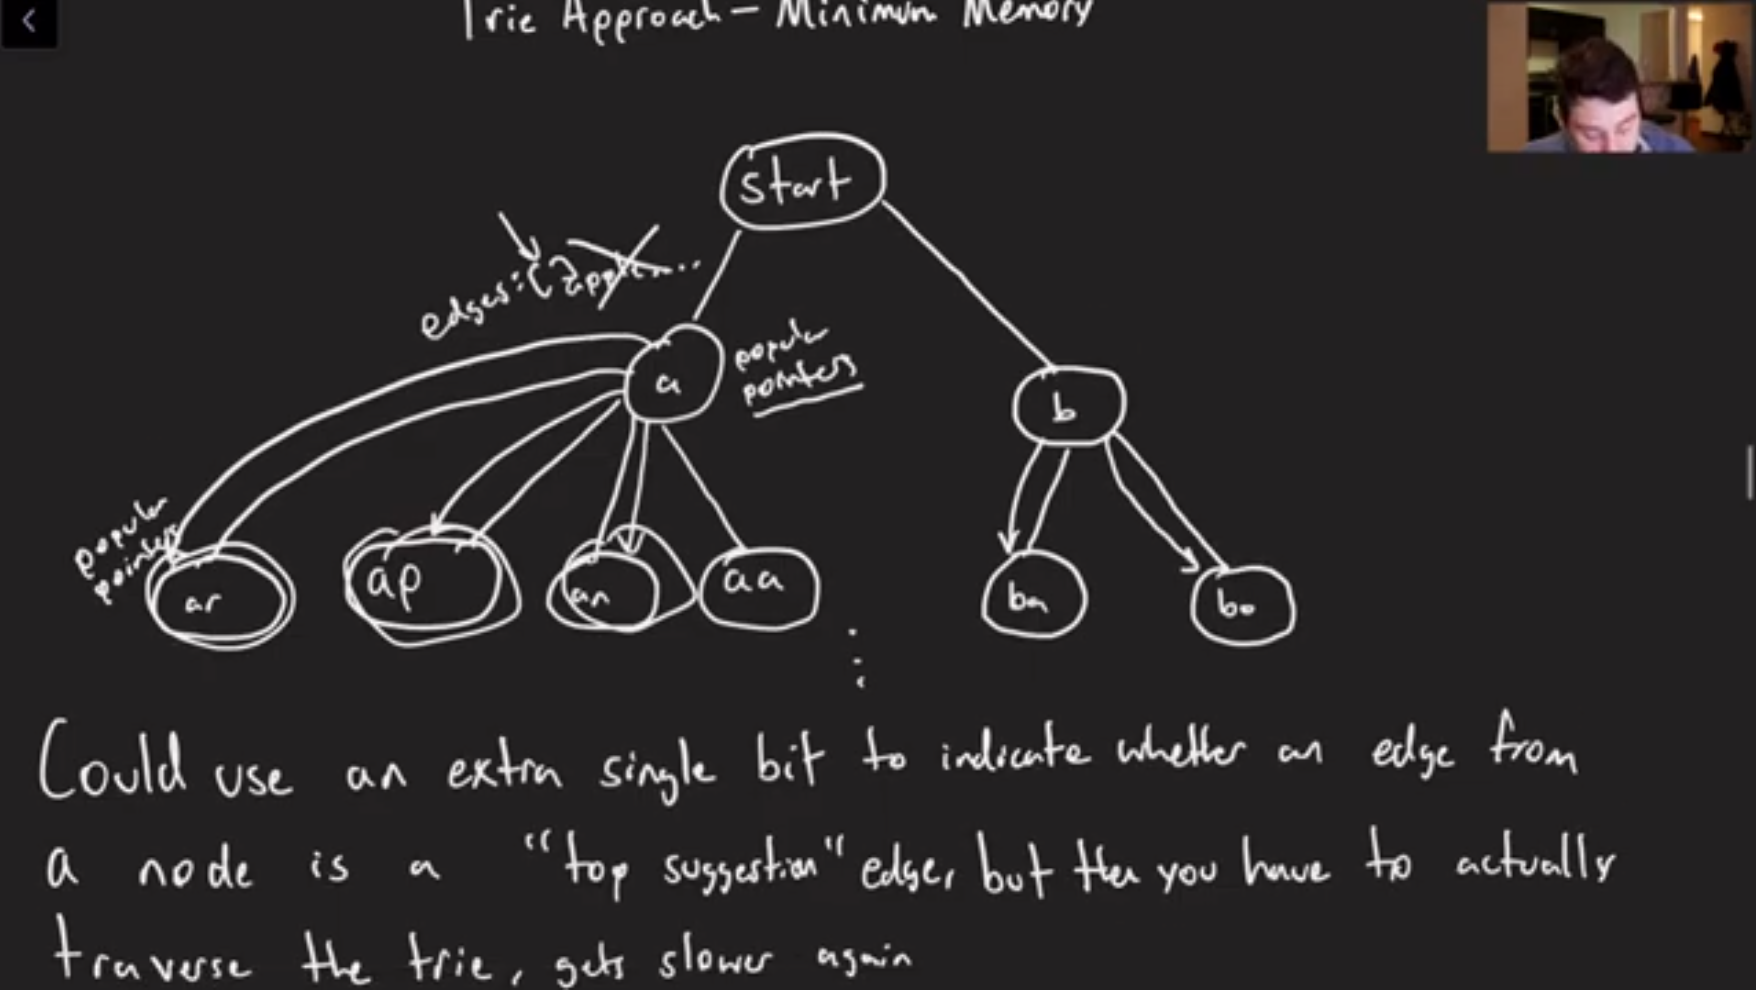 Trie Approach - Minimum Memory
start
edges: [
a
popular
pointers
b
popular
pointers
ar
ap
an
aa
ba
bo
Could use an extra single bit to indicate whether an edge from
a node is a "top suggestion" edge, but then you have to actually
traverse the trie, gets slower again